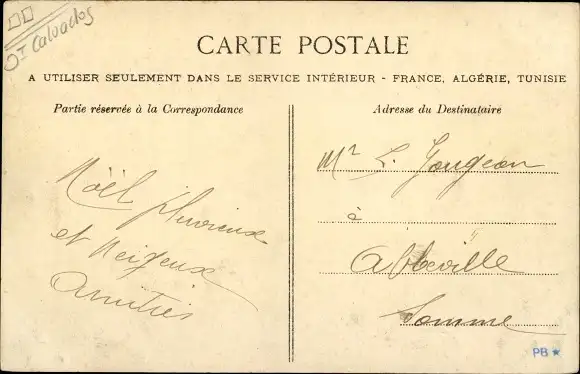 DI Calvados
CARTE POSTALE
A UTILISER SEULEMENT DANS LE SERVICE INTÉRIEUR - FRANCE, ALGÉRIE, TUNISIE
Partie réservée à la Correspondance
Adresse du Destinataire
Noël pluvieux
et Neigeux
Amitiés
Mr L. Gougeon
à
Abbeville
Somme
PB ★